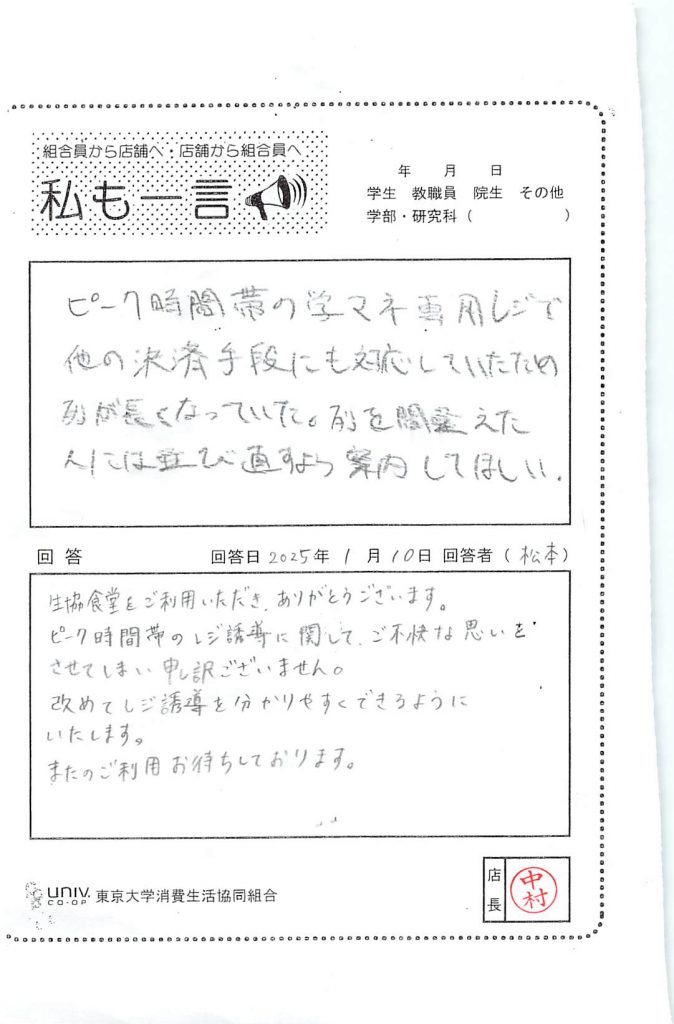 組合員から店舗へ・店舗から組合員へ
私も一言
年 月 日
学生 教職員 院生 その他
学部・研究科（ ）
ピーク時間帯の学マネ専用レジで
他の決済手段にも対応していたため
列が長くなっていた。列を間違えた
人には並び直すよう案内してほしい.
回答 回答日 2025年 1月 10日 回答者（松本）
生協食堂をご利用いただき、ありがとうございます。
ピーク時間帯のレジ誘導に関して、ご不快な思いを
させてしまい申し訳ございません。
改めてレジ誘導を分かりやすくできるように
いたします。
またのご利用お待ちしております。
UNIV. CO-OP 東京大学消費生活協同組合
店長 中村